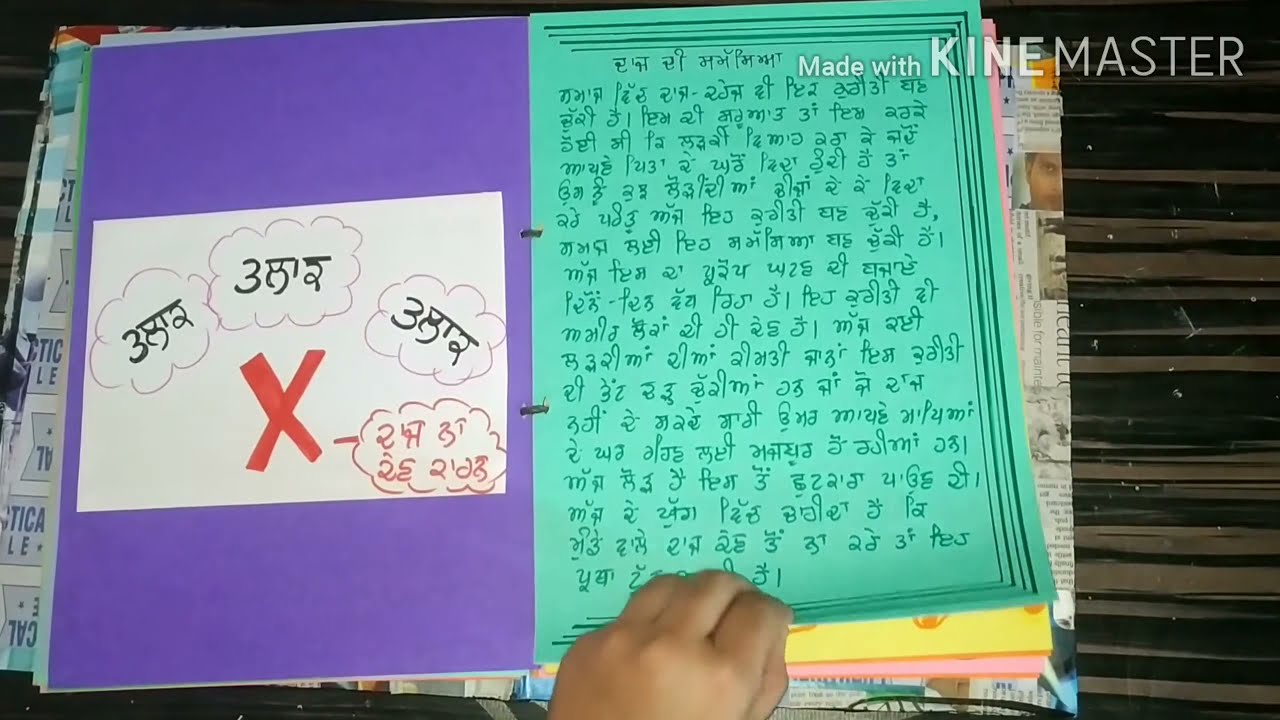 Made with KINEMASTER
ਤਲਾਕ
ਤਲਾਕ
ਤਲਾਕ
X
ਦਾਜ ਨਾ
ਦੇਣ ਕਾਰਨ
ਦਾਜ ਦੀ ਸਮੱਸਿਆ
ਸਮਾਜ ਵਿੱਚ ਦਾਜ-ਦਹੇਜ ਵੀ ਇਕ ਕੁਰੀਤੀ ਬਣ
ਚੁੱਕੀ ਹੈ। ਇਸ ਦੀ ਸ਼ੁਰੂਆਤ ਤਾਂ ਇਸ ਕਰਕੇ
ਹੋਈ ਸੀ ਕਿ ਲੜਕੀ ਵਿਆਹ ਕਰਾ ਕੇ ਜਦੋਂ
ਆਪਣੇ ਪਿਤਾ ਦੇ ਘਰੋਂ ਵਿਦਾ ਹੁੰਦੀ ਹੈ ਤਾਂ
ਉਸ ਨੂੰ ਕੁਝ ਲੋੜੀਂਦੀਆਂ ਚੀਜ਼ਾਂ ਦੇ ਕੇ ਵਿਦਾ
ਕਰੇ ਪਰੰਤੂ ਅੱਜ ਇਹ ਕੁਰੀਤੀ ਬਣ ਚੁੱਕੀ ਹੈ,
ਸਮਾਜ ਲਈ ਇਹ ਸਮੱਸਿਆ ਬਣ ਚੁੱਕੀ ਹੈ।
ਅੱਜ ਇਸ ਦਾ ਪ੍ਰਕੋਪ ਘਟਣ ਦੀ ਬਜਾਏ
ਦਿਨੋਂ-ਦਿਨ ਵੱਧ ਰਿਹਾ ਹੈ। ਇਹ ਕੁਰੀਤੀ ਵੀ
ਅਮੀਰ ਲੋਕਾਂ ਦੀ ਹੀ ਦੇਣ ਹੈ। ਅੱਜ ਕਈ
ਲੜਕੀਆਂ ਦੀਆਂ ਕੀਮਤੀ ਜਾਨਾਂ ਇਸ ਕੁਰੀਤੀ
ਦੀ ਭੇਂਟ ਚੜ੍ਹ ਚੁੱਕੀਆਂ ਹਨ ਜਾਂ ਜੋ ਦਾਜ
ਨਹੀਂ ਦੇ ਸਕਦੇ ਸਾਰੀ ਉਮਰ ਆਪਣੇ ਮਾਪਿਆਂ
ਦੇ ਘਰ ਰਹਿਣ ਲਈ ਮਜਬੂਰ ਹੋ ਰਹੀਆਂ ਹਨ।
ਅੱਜ ਲੋੜ ਹੈ ਇਸ ਤੋਂ ਛੁਟਕਾਰਾ ਪਾਉਣ ਦੀ।
ਅੱਜ ਦੇ ਯੁੱਗ ਵਿੱਚ ਚਾਹੀਦਾ ਹੈ ਕਿ
ਮੁੰਡੇ ਵਾਲੇ ਦਾਜ ਲੈਣ ਤੋਂ ਨਾ ਕਰੇ ਤਾਂ ਇਹ
ਪ੍ਰਥਾ ਹੈ।